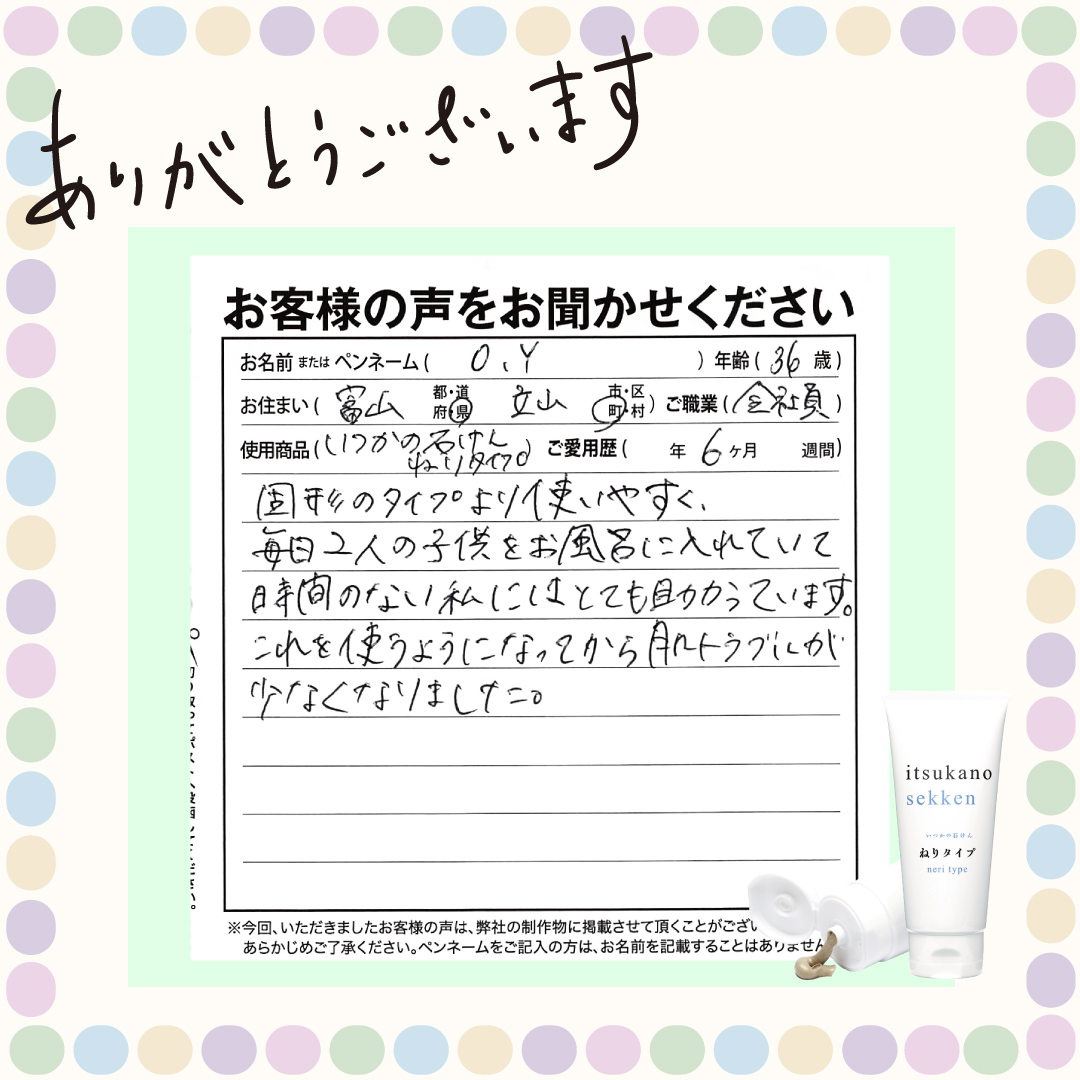 ありがとうございます
お客様の声をお聞かせください
お名前またはペンネーム( O.Y ) 年齢( 36 歳)
お住まい( 富山 都・道府・県 立山 市・区町・村) ご職業( 会社員 )
使用商品(いつかの石けんねりタイプ) ご愛用歴( 年 6ヶ月 週間)
固形のタイプより使いやすく、
毎日2人の子供をお風呂に入れていて
時間のない私にはとても助かっています。
これを使うようになってから肌トラブルが
少なくなりました。
※今回、いただきましたお客様の声は、弊社の制作物に掲載させて頂くことがござい
あらかじめご了承ください。ペンネームをご記入の方は、お名前を記載することはありません
itsukano
sekken
いつかの石けん
ねりタイプ
neri type